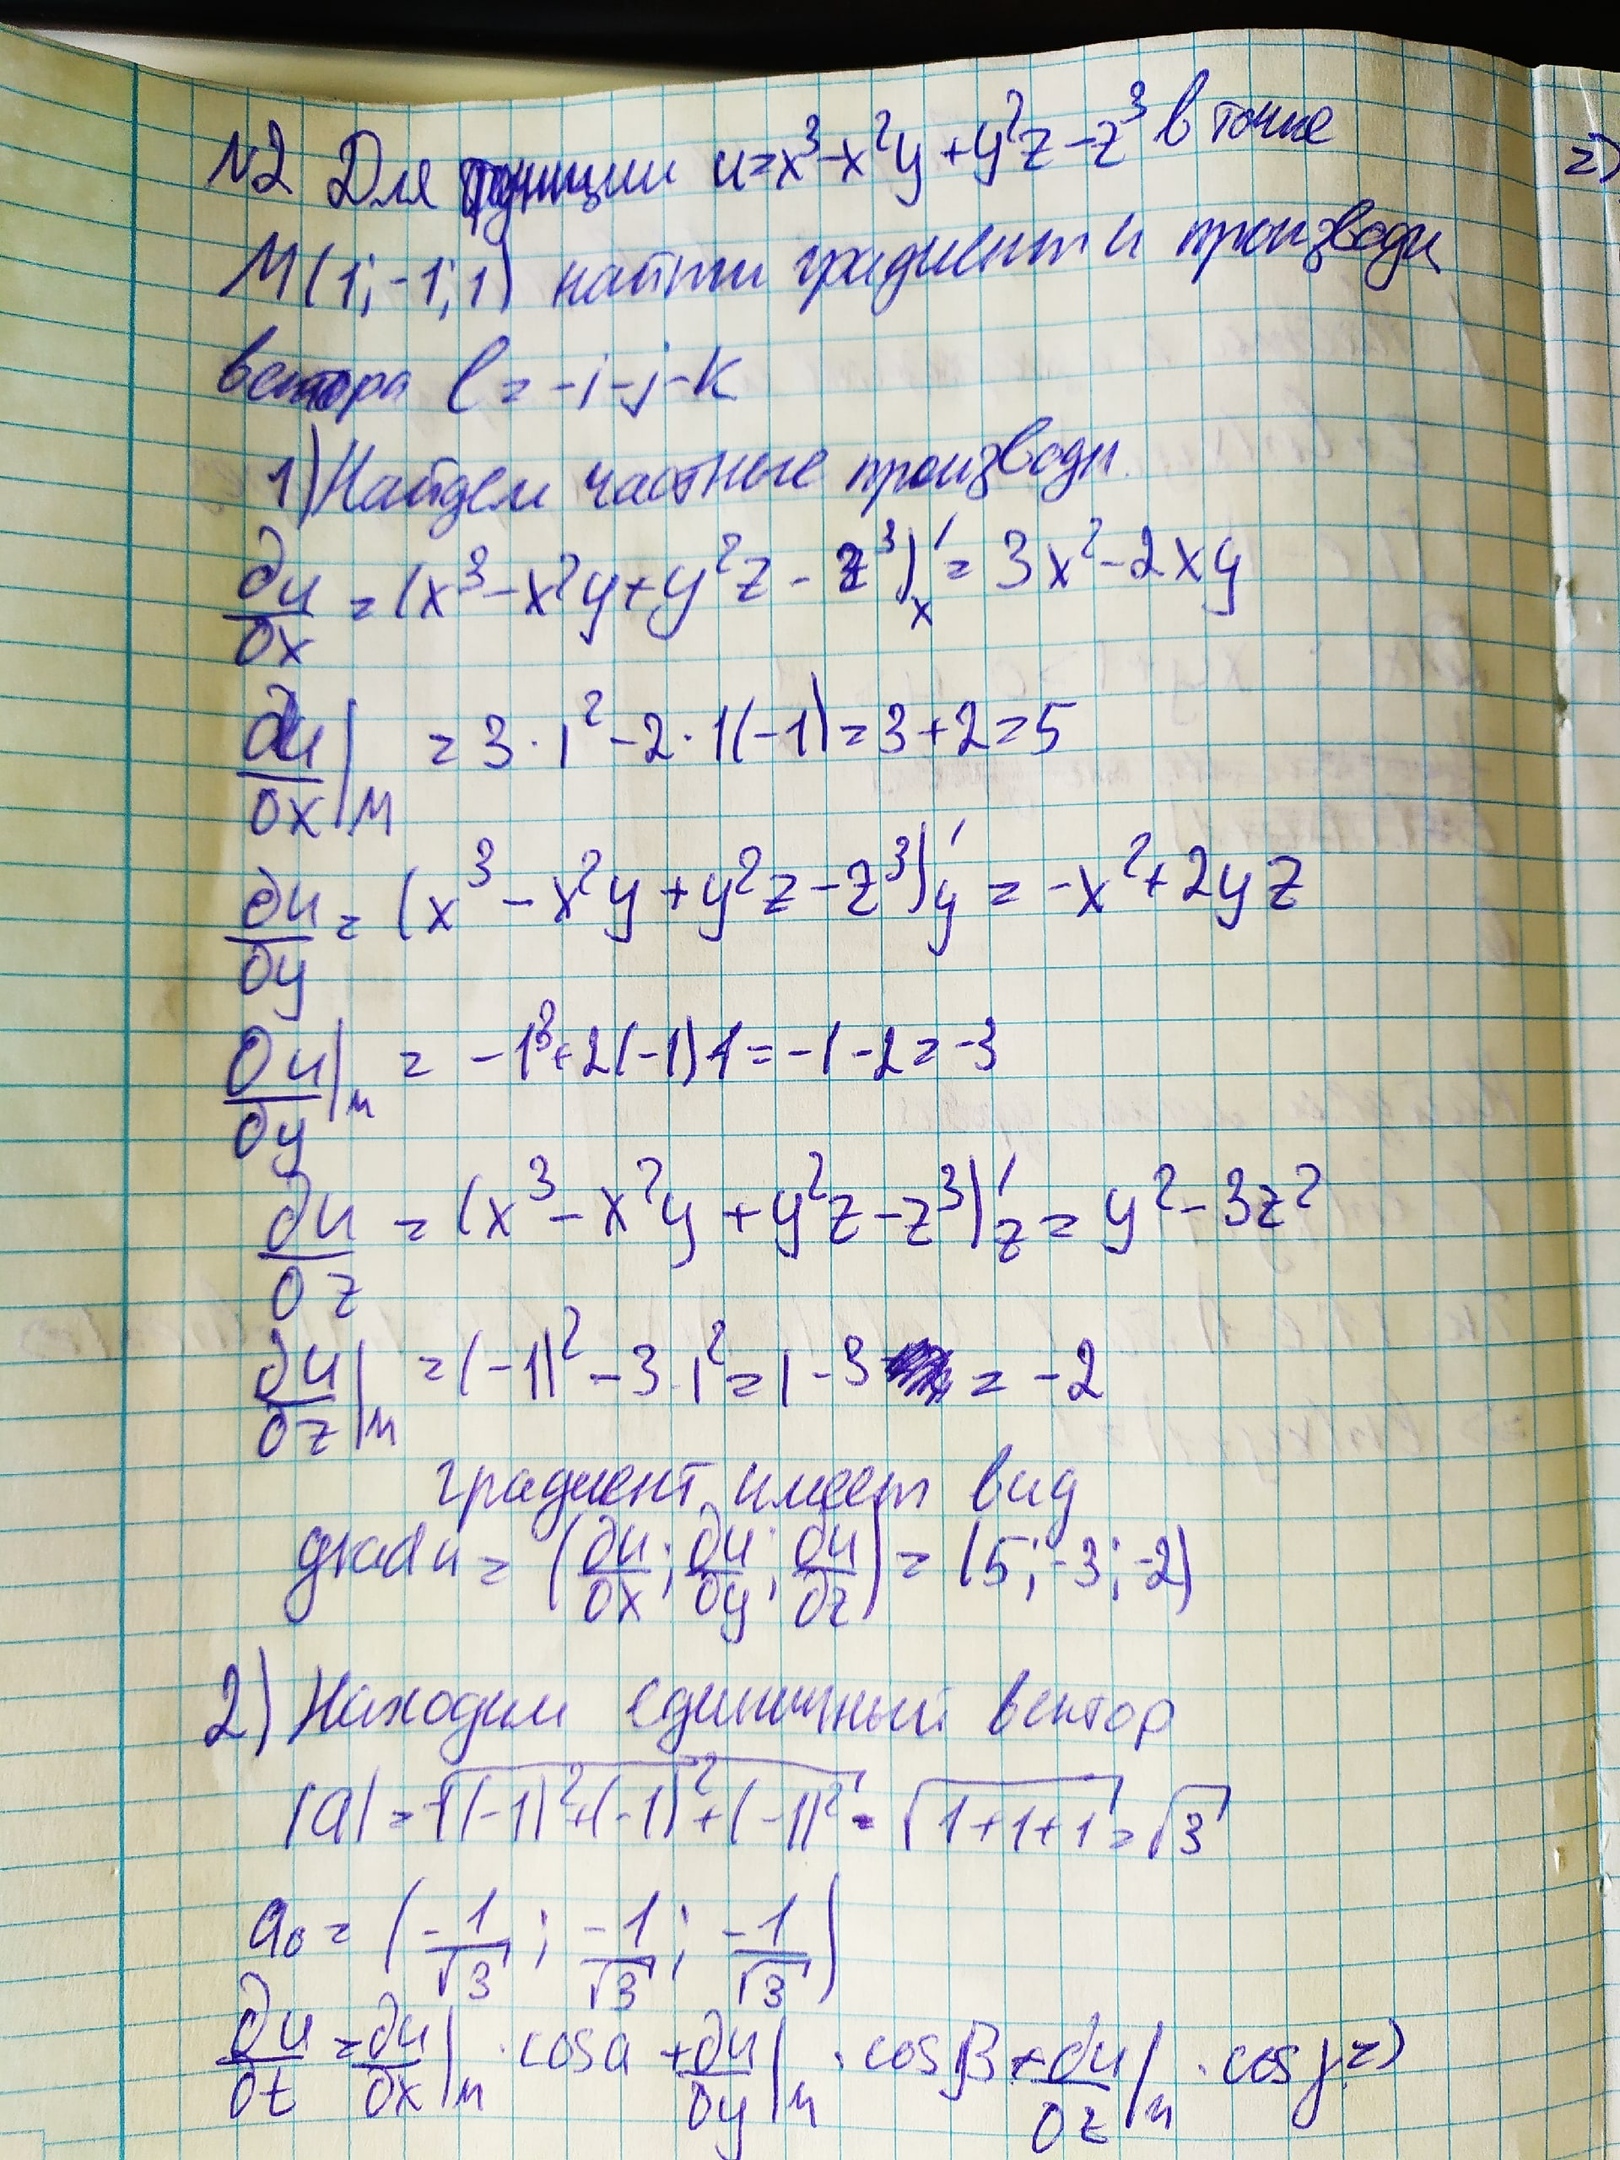 №2 Для функции u=x³-x²y+y²z-z³ в точке
M(1;-1;1) найти градиент и производн
вектора l=-i-j-k
1) Найдем частные производн.
∂u/∂x = (x³-x²y+y²z-z³)'x = 3x²-2xy
∂u/∂x|M = 3·1²-2·1(-1)=3+2=5
∂u/∂y = (x³-x²y+y²z-z³)'y = -x²+2yz
∂u/∂y|м = -1³+2(-1)·1=-1-2=-3
∂u/∂z = (x³-x²y+y²z-z³)'z = y²-3z²
∂u/∂z|м = (-1)²-3·1²=1-3 = -2
градиент имеет вид
grad u = (∂u/∂x; ∂u/∂y; ∂u/∂z) = (5;-3;-2)
2) Находим единичный вектор
|a|=√((-1)²+(-1)²+(-1)²)=√(1+1+1)=√3
a₀=(-1/√3; -1/√3; -1/√3)
∂u/∂z=∂u/∂x|м·cosα+∂u/∂y|м·cosβ+∂u/∂z|м·cosγ=)
=)